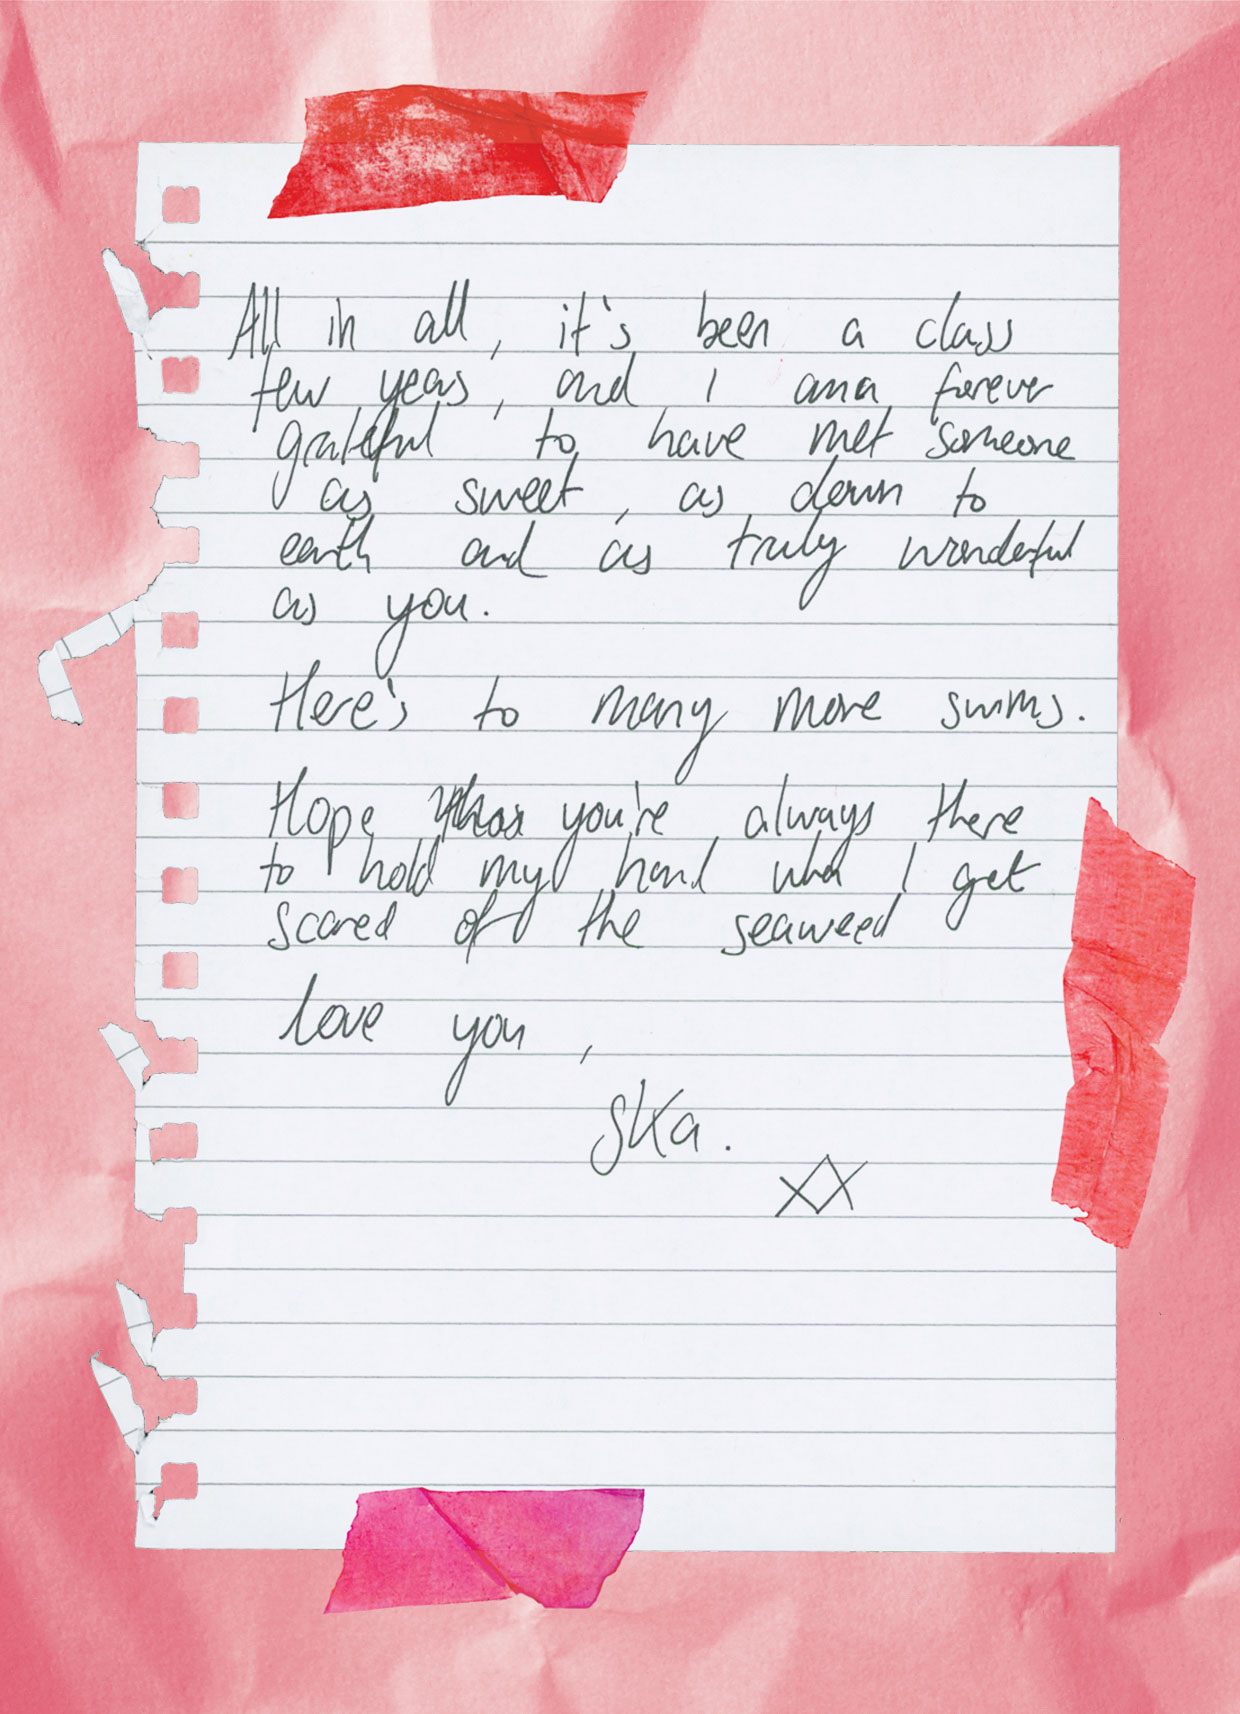 All in all, it's been a class
few years, and I am a forever
grateful to have met someone
as sweet, as down to
earth and as truly wonderful
as you.
Here's to many more swims.
Hope you're always there
to hold my hand when I get
scared of the seaweed
love you,
Ska.
XX